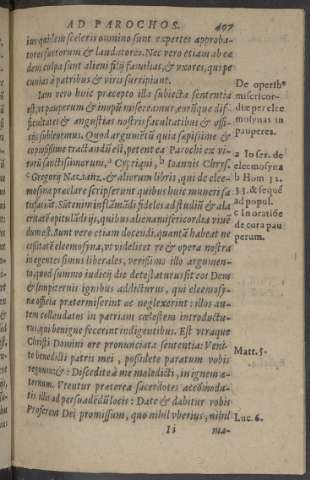 AD PAROCHOS. 497
ius quidem sceleris omnino sunt expertes approba-
tores furtorum & laudatores. Nec vero etiam ab ea
dem culpa sunt alieni filij familias, & vxores, qui pe
cunias à patribus & viris surripiunt.
Iam vero huic præcepto illa subiecta sententia
est, vt pauperum & inopū misereamur, eorūque dif
ficultates & angustias nostris facultatibus & offi-
cijs subleuemus. Quod argumētū quia sæpissime &
copiosissime tractandū est, petent ea Parochi ex vi-
rorū sanctissimorum, a Cypriani, b Ioannis Chrys.
c Gregorij Nazianz. & aliorum libris, qui de elee-
mosina præclare scripserunt quibus huic muneri sa
tisfaciāt. Sūt enim inflāmādi fideles ad studiū & ala
critatē opitulādi ijs, quibus aliena misericordia viuē
dum est. Sunt vero etiam docendi, quantū habeat ne
cessitatē eleemosyna, vt videlicet re & opera nostra
in egentes simus liberales, verissimo illo argumen-
to, quod summo iudicij die detestaturus sit eos Deus
& sempiternis ignibus addicturus, qui eleemosy-
næ officia prætermiserint ac neglexerint: illos au-
tem collaudatos in patriam cœlestem introductu-
rus, qui benigne fecerint indigentibus. Est vtraque
Christi Domini ore pronunciata sententia: Veni-
te benedicti patris mei, possidete paratum vobis
regnum: &: Discedite à me maledicti, in ignem æ-
ternum. Vtentur præterea sacerdotes accōmoda-
tis illa ad persuadēdū locis: Date & dabitur vobis
Proferent Dei promissum, quo nihil vberius, nihil
Ii ma-
De operib⁹
misericor-
diæ per elee
mosynas in
pauperes.
a In ser. de
eleemosyna
b Hom. 32.
33. & seque
ad popul.
c In oratiōe
de cura pau
perum.
Matt. 5.
Luc. 6.